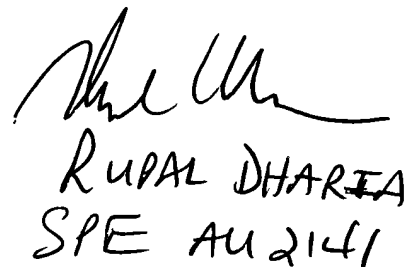 RUPAL DHARIA
SPE AU 2141